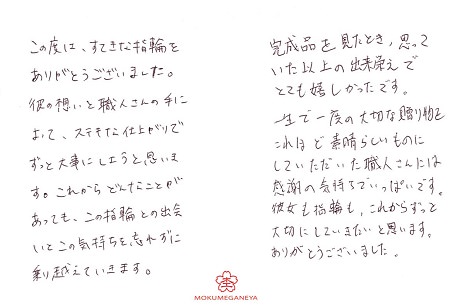 この度は、すてきな指輪を
ありがとうございました。
彼の想いと職人さんの手に
よって、ステキな仕上がりで
ずっと大事にしようと思いま
す。これからどんなことが
あっても、この指輪との出会
いとこの気持ちを忘れずに
乗り越えていきます。
完成品を見たとき、思って
いた以上の出来栄えで
とても嬉しかったです。
一生で一度の大切な贈り物を
これほど素晴らしいものに
していただいた職人さんには
感謝の気持ちでいっぱいです。
彼女も指輪も、これからずっと
大切にしていきたいと思います。
ありがとうございました。
MOKUMEGANEYA